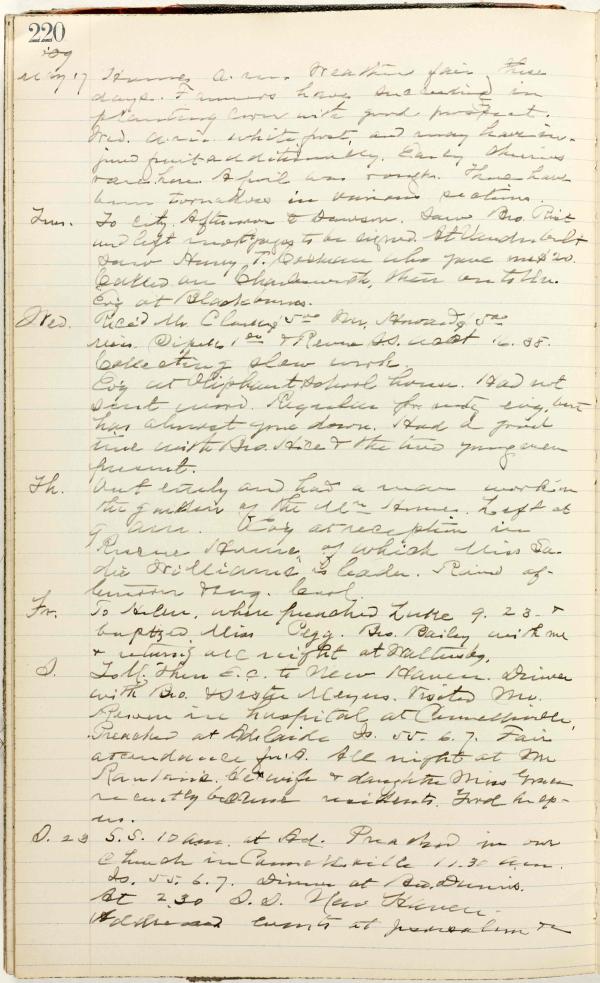 220
'09
May 17 Home, a.m. Weather fair these
days. Farmers have succeeded in
planting corn with good prospect.
Wed. a.m. white frost, and may have in-
jured fruit additionally. Early cherries
rare here. April was rough. There have
been tornadoes in various sections.
Tues. To city. Afternoon to Dawson. Saw Bro.
and left mortgages to be signed. At Vanderbilt
saw Henry T. Cochran who gave me $20.
Called on Charlesworth, then on to
Ev'g at Blackburns.
Wed. Rec'd Mr. 5.00 Mr. Howard's 5.00
Miss 1.00 & S.S. 16.35.
Collecting slow work.
Ev'g at Oliphant School house. Had not
sent word. Regular for ev'g, but
has almost gone down. Had a good
time with Bro. & the two young men
present.
Th. Out early and had a man work in
the garden of the Home. Left at
9 a.m. Ev'g at reception in
Rescue Home, of which Miss Sa-
die Williams is leader. Rain af-
ternoon & ev'g. Cool.
Fr. To where preached Luke 9.23 &
baptized Miss Pegg. Bro. Bailey with me
& return'g all night at
S. To M. then E.C. to New Haven. Dinner
with Bro. & Sister Meyers. Visited Mr.
in hospital at Connellsville.
Preached at Adelaide Is. 55.6.7. Fair
attendance for S. All night at Mr
wife & daughter Miss Grace
recently became residents. Lord keep
us.
S. 23 S.S. 10 a.m. at Ad. Preached in our
Church in Connellsville 11.30 a.m.
Is. 55.6.7. Dinner at Bro.
At 2.30 S.S. New Haven.
Addressed events at Jerusalem &